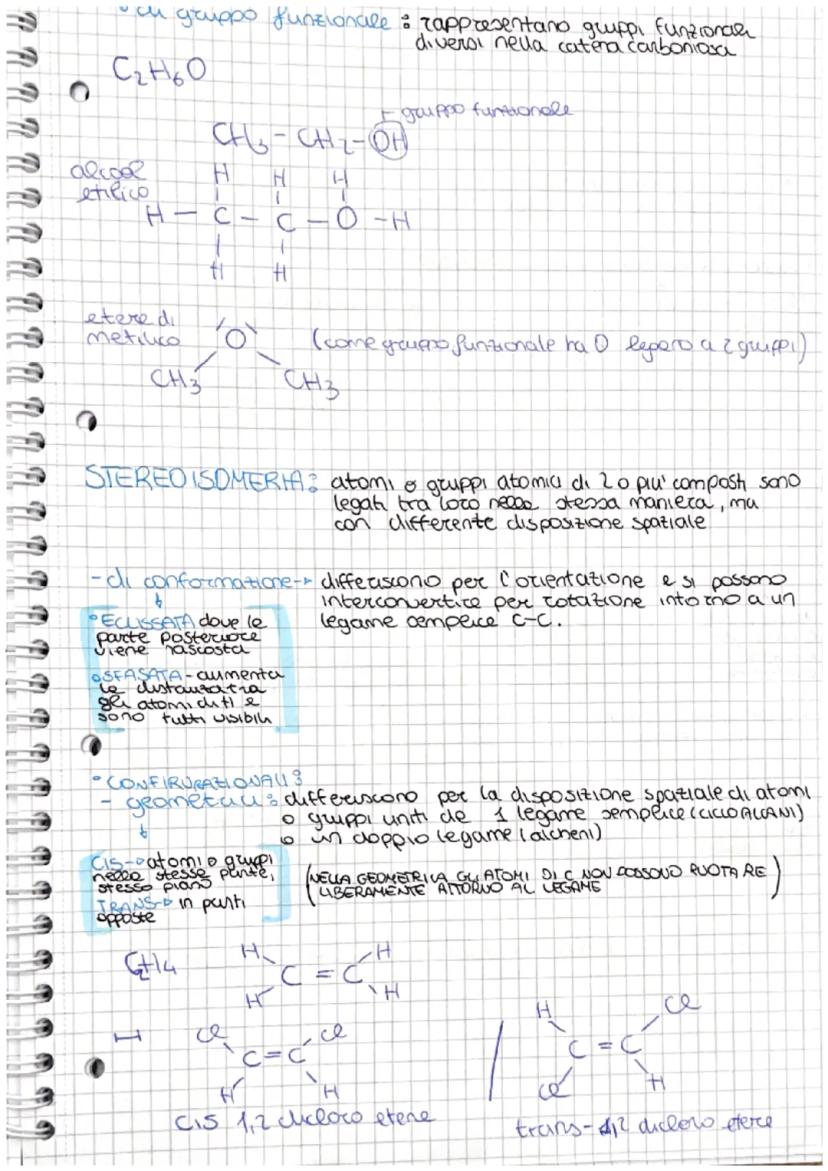 di gruppo funzionale: rappresentano gruppi funzionali
diversi nella catena carboniosa
C2H6O
gruppo funzionale
CH3 - CH2 - OH
alcool
etilico
H H H
H - C - C - O - H
H H
etere di
metilico
O
(come gruppo funzionale ha O legato a 2 gruppi)
CH3 CH3
STEREOISOMERIA: atomi o gruppi atomici di 2 o piu' composti sono
legati tra loro nella stessa maniera, ma
con differente disposizione spaziale
- di conformazione → differiscono per l'orientazione e si possono
interconvertire per rotazione intorno a un
legame semplice C-C.
ECLISSATA dove la
parte posteriore
viene nascosta
SFASATA - aumenta
la distanza tra
gli atomi di H e
sono tutti visibili
CONFIRURAZIONALI:
- geometrici: differiscono per la disposizione spaziale di atomi
o gruppi uniti da 1 legame semplice (CICLOALCANI)
o un doppio legame (alcheni)
CIS → atomi o gruppi
nelle stesse parti,
stesso piano
TRANS → in parti
opposte
(NELLA GEOMETRICA GLI ATOMI DI C NON POSSONO RUOTARE
LIBERAMENTE ATTORNO AL LEGAME)
C2H4
H H
C = C
H H
Cl Cl
C = C
H H
cis 1,2 dicloro etene
H Cl
C = C
Cl H
trans-1,2 dicloro etere